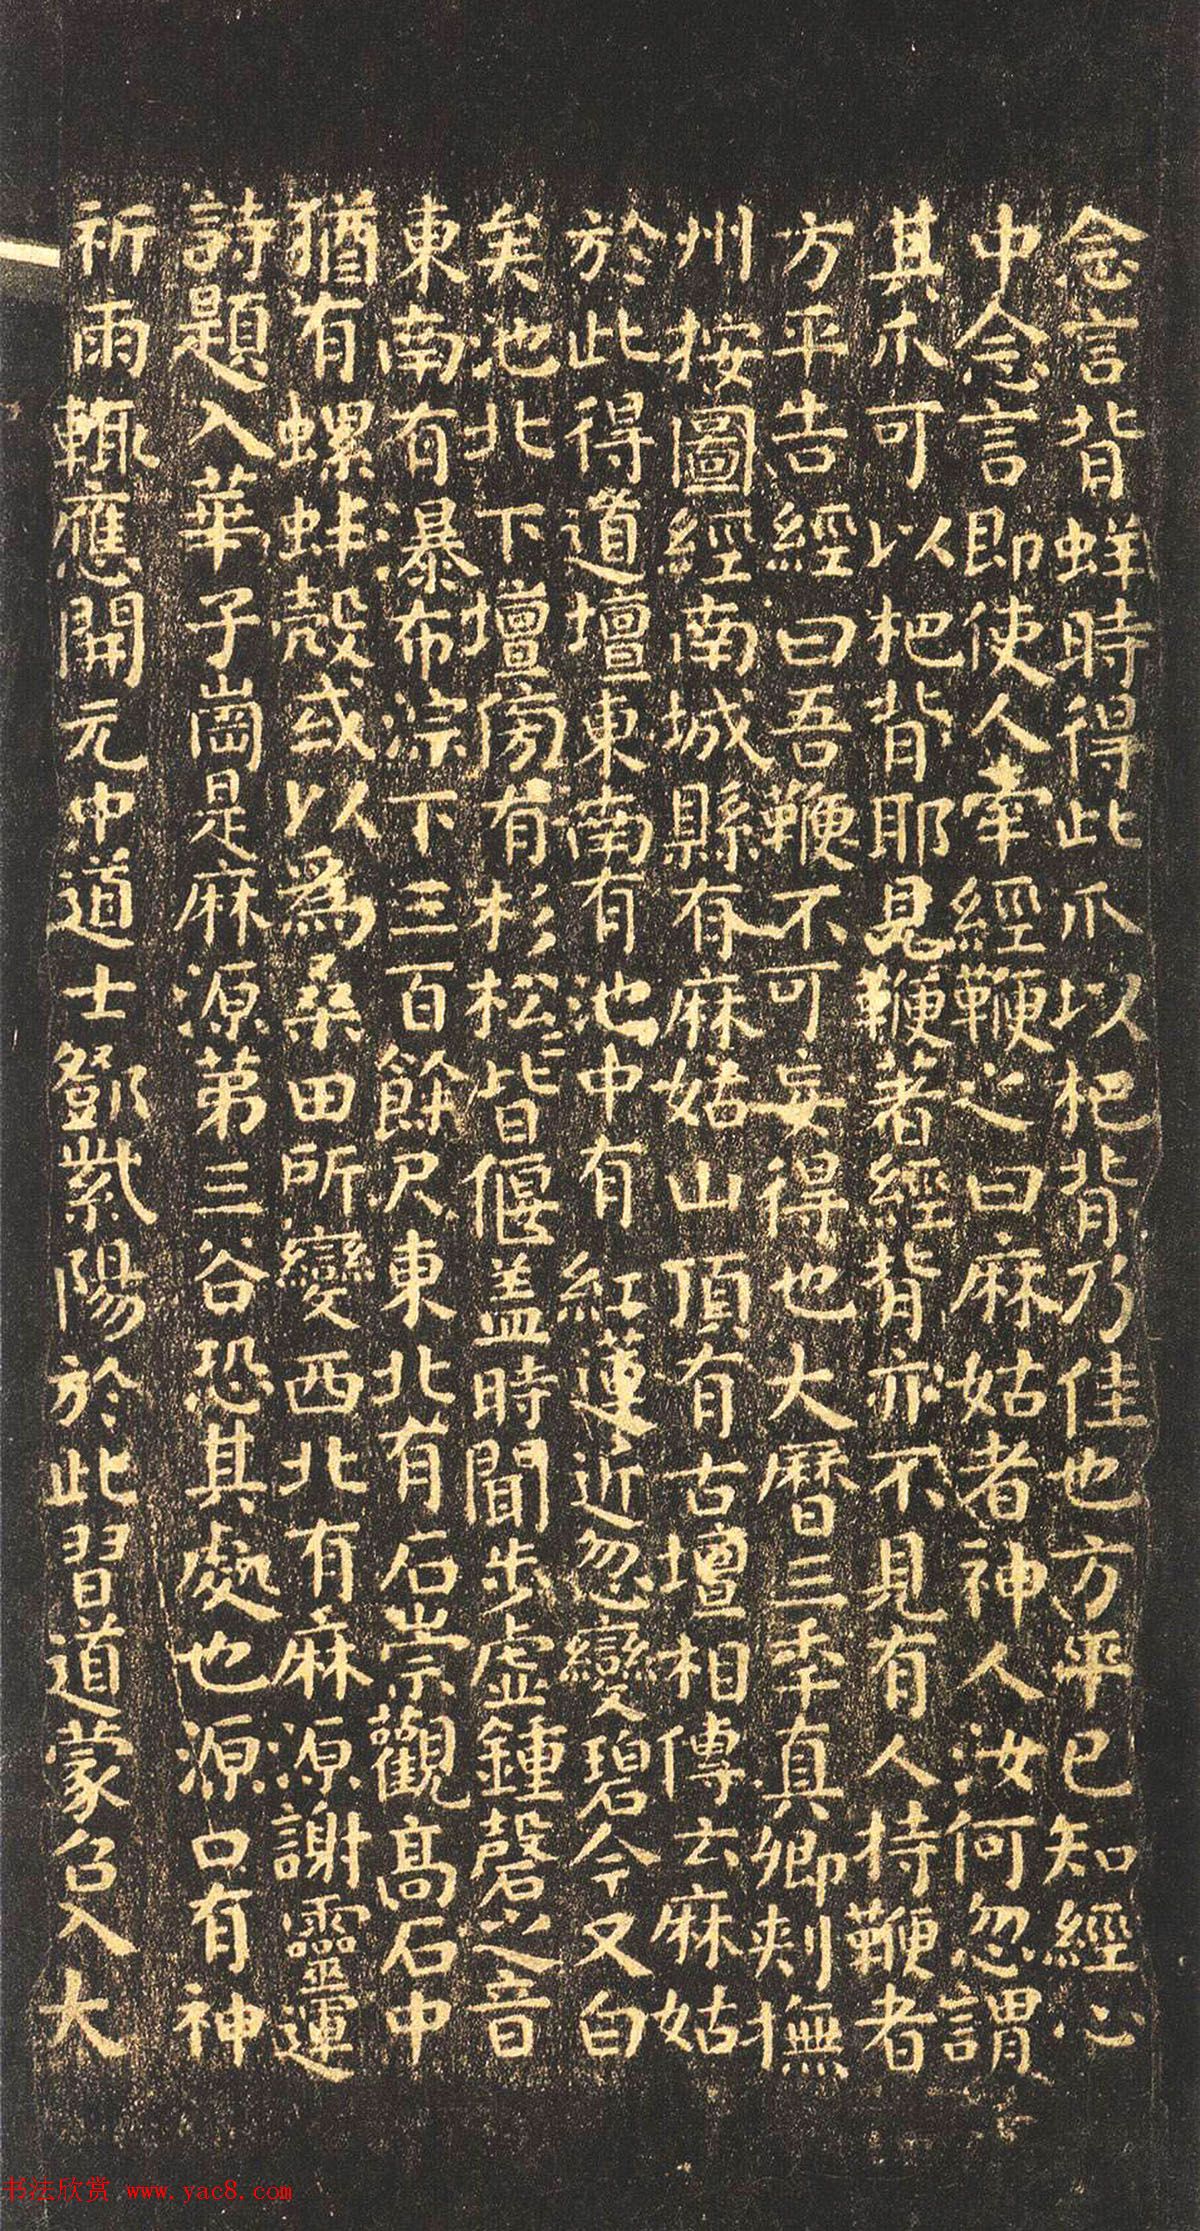 念言背蛘時得此爪以杷背乃佳也方平已知經心
中念言即使人牽經鞭之曰麻姑者神人汝何忽謂
其爪可以杷背耶見鞭著經背亦不見有人持鞭者
方平告經曰吾鞭不可妄得也大曆三年真卿刺撫
州按圖經南城縣有麻姑山頂有古壇相傳云麻姑
於此得道壇東南有池中有紅蓮近忽變碧今又白
矣池北下壇傍有杉松皆偃蓋時聞步虛鍾磬之音
東南有瀑布淙下三百餘尺東北有石崇觀高石中
猶有螺蚌殼或以為桑田所變西北有麻源謝靈運
詩題入華子崗是麻源第三谷恐其處也源口有神
祈雨輒應開元中道士鄧紫陽於此習道蒙召入大
书法欣赏 www.yac8.com